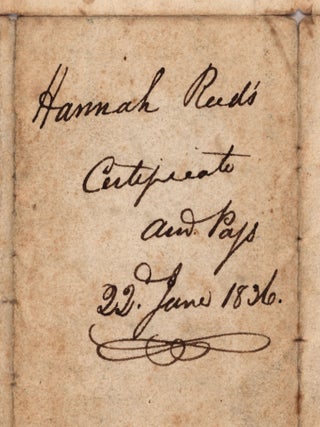 Hannah Reed's
Certificate
and Pass
22d. June 1836.